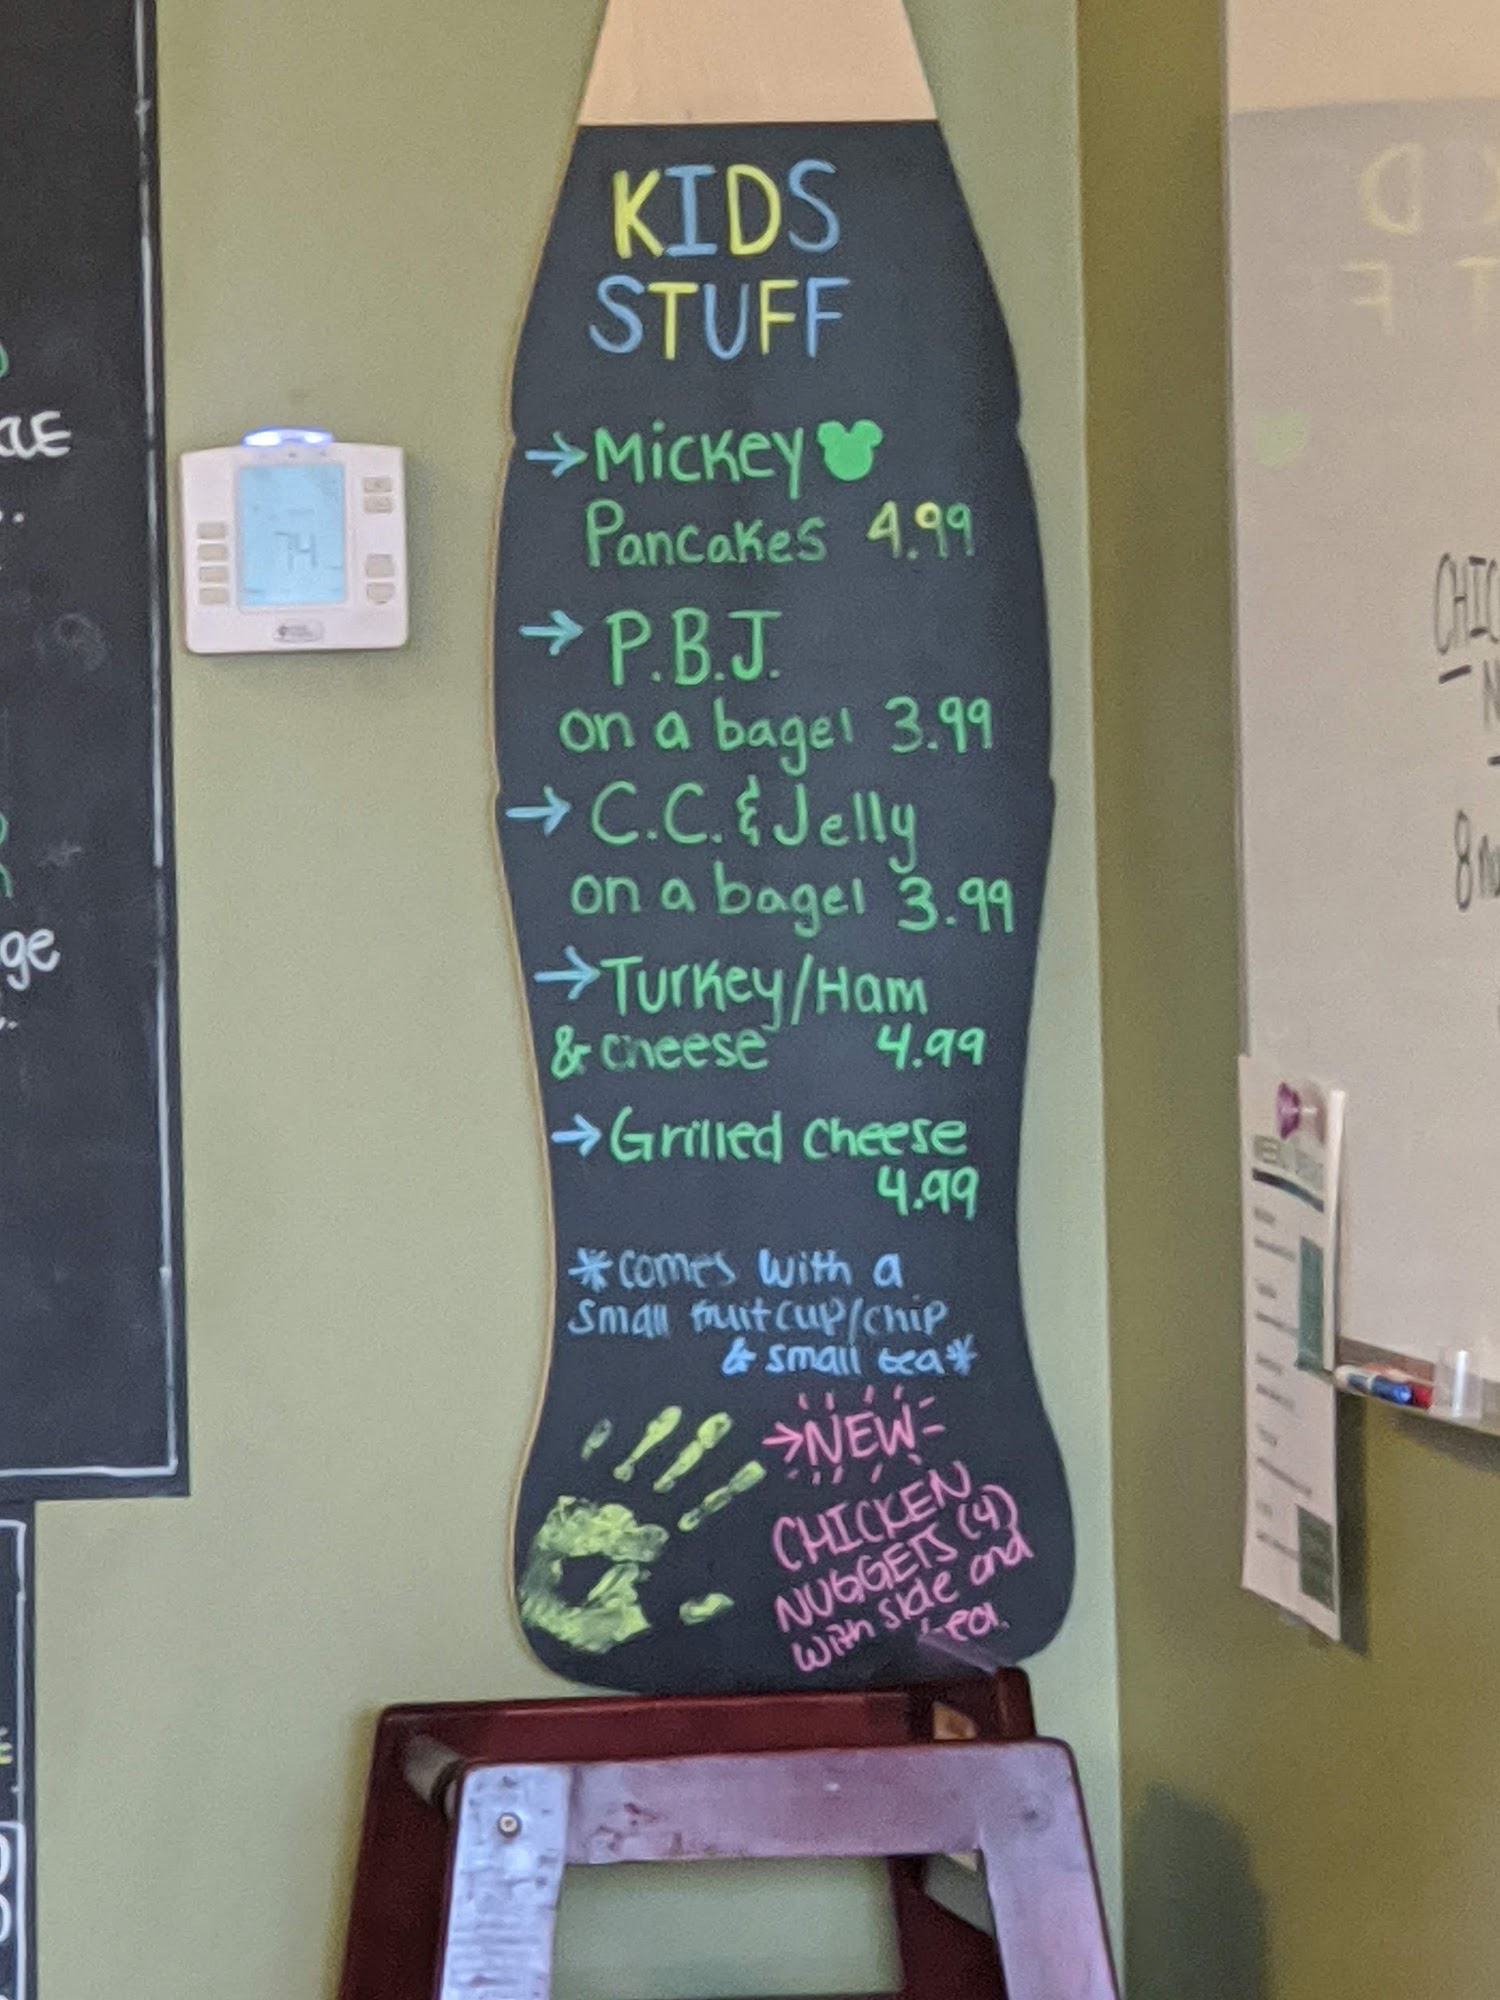 KIDS
STUFF
→Mickey
Pancakes 4.99
→ P.B.J.
on a bagel 3.99
→ C.C. & Jelly
on a bagel 3.99
→Turkey/Ham
& cheese 4.99
→Grilled cheese
4.99
*comes with a
small fruit cup/chip
& small tea*
→NEW
CHICKEN
NUGGETS (4)
with side and
tea.
74
ge
8